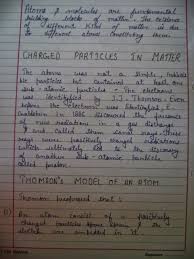 Atoms & molecules are fundamental
building blocks of matter. The existence
of different kind of matter is due
to different atoms constituting them.
CHARGED PARTICLES IN MATTER
The atoms was not a simple, indivisi
ble particle but contained at least one
sub-atomic particle - The electrons
was identified J.J. Thomson. Even
before the electron was identified, E.
Goldstein in 1886 discovered the presence
of new radiations in a gas discharge
& and called them canal rays. These
rays were positively charged radiations
which ultimately led to the discovery
of another sub-atomic particle
called proton.
THOMSON'S MODEL OF AN ATOM
Thomson proposed that :
An atom consist of a positively
charged sphere & the
are embedded in it.